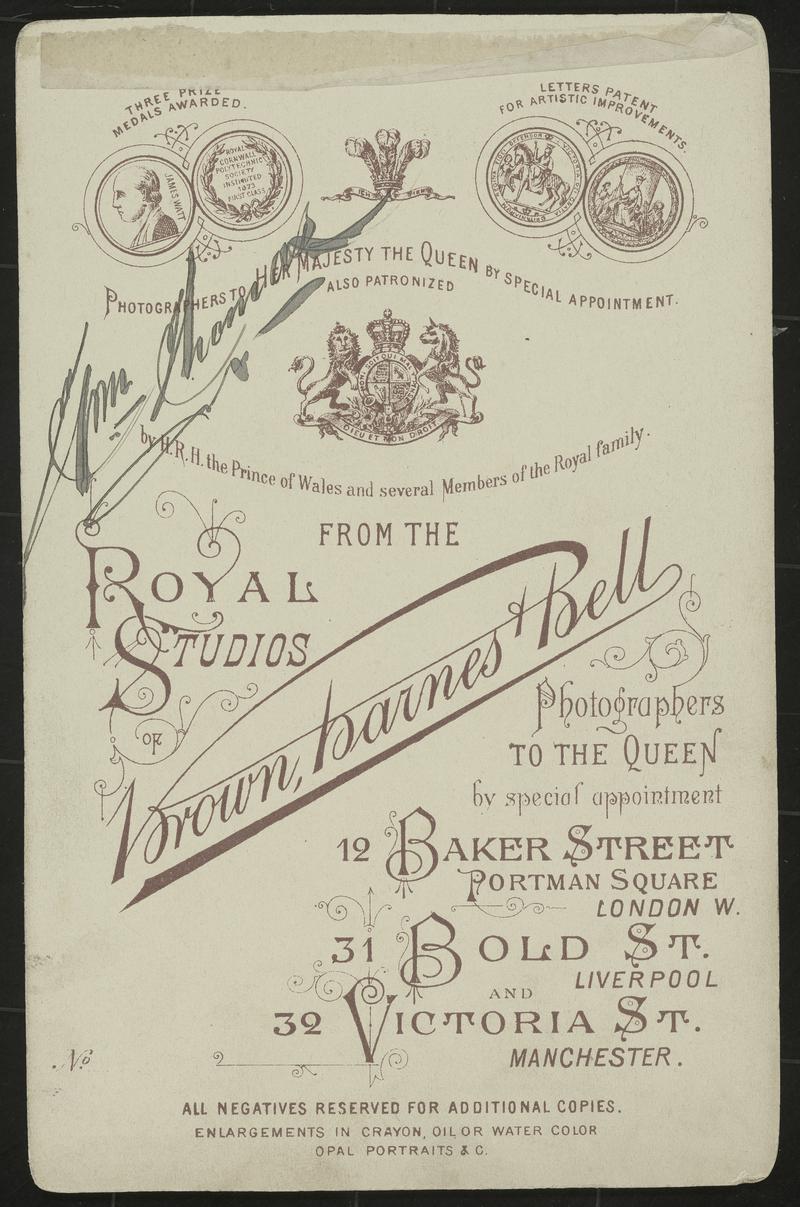 THREE PRIZE
MEDALS AWARDED.
LETTERS PATENT
FOR ARTISTIC IMPROVEMENTS.
JAMES WATT
ROYAL
CORNWALL
POLYTECHNIC
SOCIETY
INSTITUTED
1873
FIRST CLASS
ICH DIEN
PHOTOGRAPHERS TO HER MAJESTY THE QUEEN BY SPECIAL APPOINTMENT.
ALSO PATRONIZED
HONI SOIT QUI MAL
DIEU ET MON DROIT
by H.R.H. the Prince of Wales and several Members of the Royal family.
FROM THE
ROYAL
STUDIOS
OF
Brown, Barnes & Bell
Photographers
TO THE QUEEN
by special appointment
12 BAKER STREET
PORTMAN SQUARE
LONDON W.
31 BOLD ST.
LIVERPOOL
AND
32 VICTORIA ST.
MANCHESTER.
No
ALL NEGATIVES RESERVED FOR ADDITIONAL COPIES.
ENLARGEMENTS IN CRAYON, OIL OR WATER COLOR
OPAL PORTRAITS & C.